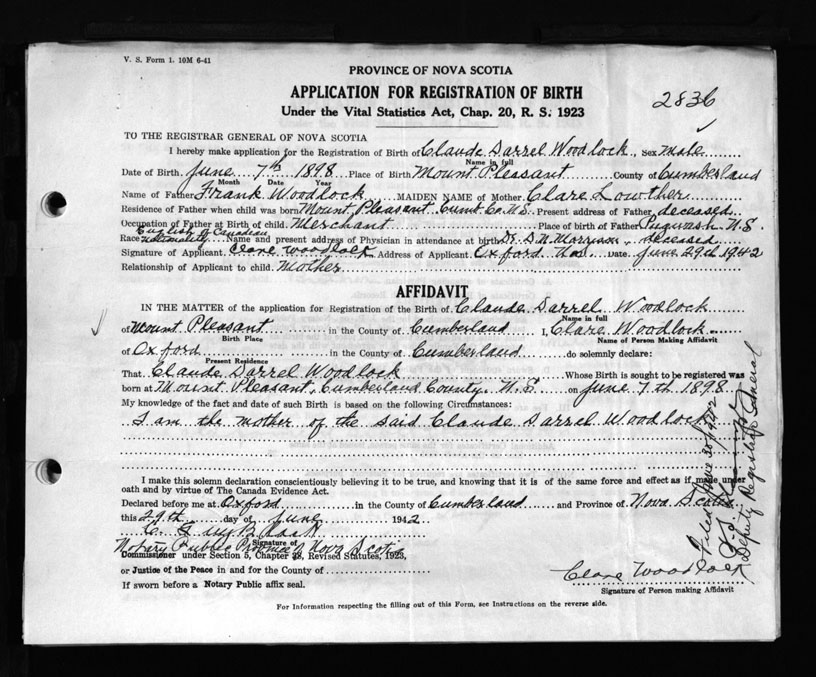 V. S. Form 1. 10M 6-41
PROVINCE OF NOVA SCOTIA
APPLICATION FOR REGISTRATION OF BIRTH
2836
Under the Vital Statistics Act, Chap. 20, R. S. 1923
TO THE REGISTRAR GENERAL OF NOVA SCOTIA
I hereby make application for the Registration of Birth of Claude Darrel Woodlock, Sex male
Name in full
Date of Birth June 7th 1898 Place of Birth Mount Pleasant County of Cumberland
Month Date Year
Name of Father Frank Woodlock MAIDEN NAME of Mother Clare Lowther
Residence of Father when child was born Mount Pleasant Cumb. Co. N.S. Present address of Father deceased
Occupation of Father at Birth of child Merchant Place of birth of Father Pugwash N.S.
English of Canadian
Race nationality Name and present address of Physician in attendance at birth Dr. Morrison, deceased
Signature of Applicant Clare Woodlock Address of Applicant Oxford N.S. Date June 29th 1942
Relationship of Applicant to child Mother
AFFIDAVIT
IN THE MATTER of the application for Registration of the Birth of Claude Darrel Woodlock
Name in full
of Mount Pleasant in the County of Cumberland I, Clare Woodlock
Birth Place Name of Person Making Affidavit
of Oxford in the County of Cumberland do solemnly declare:
Present Residence
That Claude Darrel Woodlock Whose Birth is sought to be registered was
born at Mount Pleasant, Cumberland County N.S. on June 7th 1898
My knowledge of the fact and date of such Birth is based on the following Circumstances:
I am the mother of the said Claude Darrel Woodlock
I make this solemn declaration conscientiously believing it to be true, and knowing that it is of the same force and effect as if made under
oath and by virtue of The Canada Evidence Act.
Declared before me at Oxford in the County of Cumberland and Province of Nova Scotia
this 29th day of June 1942
Signature of
Notary Public Province of Nova Scotia
Commissioner under Section 5, Chapter 28, Revised Statutes, 1923,
or Justice of the Peace in and for the County of
If sworn before a Notary Public affix seal.
Clare Woodlock
Signature of Person making Affidavit
Filed June 30/1942
Deputy Registrar General
For Information respecting the filling out of this Form, see Instructions on the reverse side.